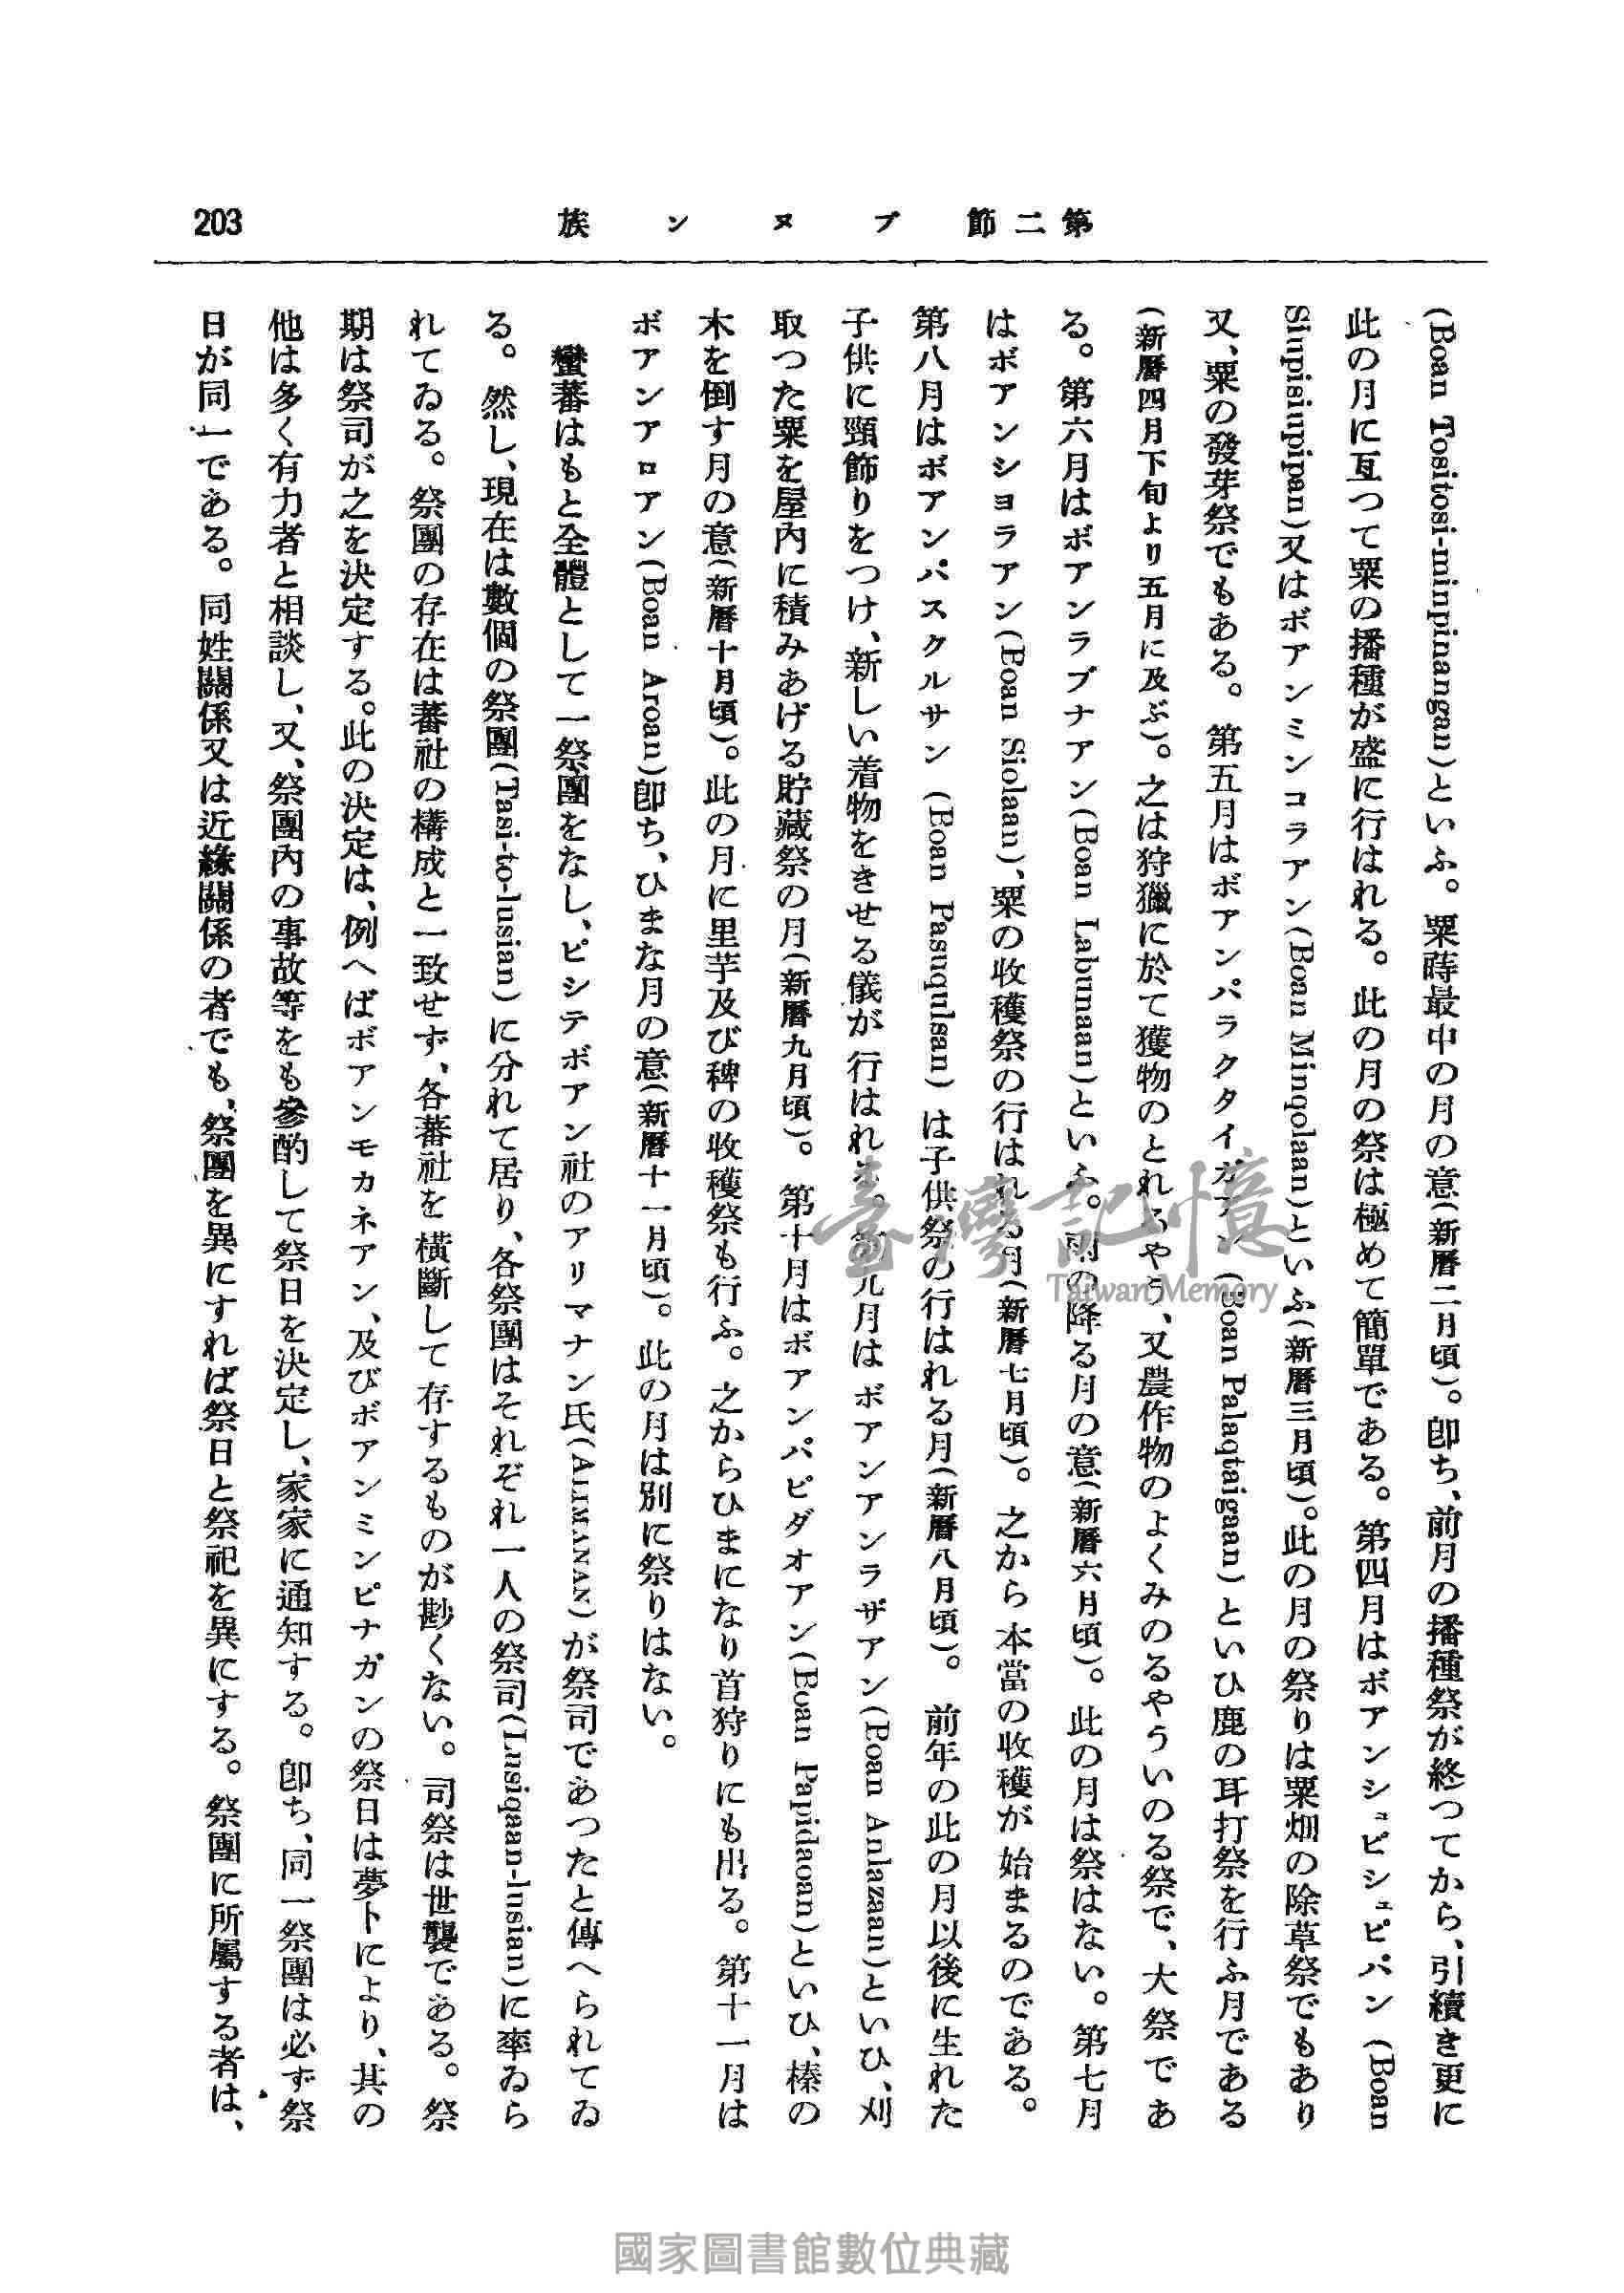 第二節 ブヌン族
203
(Boan Tositosi-minpinangan)といふ。粟蒔最中の月の意(新曆二月頃)。卽ち、前月の播種祭が終つてから、引續き更に
此の月に亙つて粟の播種が盛に行はれる。此の月の祭は極めて簡單である。第四月はボアンシュピシュピパン(Boan
Siupisiupipan)又はボアンミンコラアン(Boan Minqolaan)といふ(新曆三月頃)。此の月の祭りは粟畑の除草祭でもあり
又、粟の發芽祭でもある。第五月はボアンパラクタイガアン(Boan Palaqtaigaan)といひ鹿の耳打祭を行ふ月である
(新曆四月下旬より五月に及ぶ)。之は狩獵に於て獲物のとれるやう、又農作物のよくみのるやういのる祭で、大祭であ
る。第六月はボアンラブナアン(Boan Labunaan)といふ。雨の降る月の意(新曆六月頃)。此の月は祭はない。第七月
はボアンショラアン(Boan Siolaan)、粟の收穫祭の行はれる月(新曆七月頃)。之から本當の收穫が始まるのである。
第八月はボアンパスクルサン(Boan Pasuqulsan)は子供祭の行はれる月(新曆八月頃)。前年の此の月以後に生れた
子供に頸飾りをつけ、新しい着物をきせる儀が行はれる。第九月はボアンアンラザアン(Boan Anlazaan)といひ、刈
取つた粟を屋内に積みあげる貯藏祭の月(新曆九月頃)。第十月はボアンパピダオアン(Boan Papidaoan)といひ、榛の
木を倒す月の意(新曆十月頃)。此の月に里芋及び稗の收穫祭も行ふ。之からひまになり首狩りにも出る。第十一月は
ボアンアロアン(Boan Aroan)卽ち、ひまな月の意(新曆十一月頃)。此の月は別に祭りはない。
蠻蕃はもと全體として一祭團をなし、ピシテボアン社のアリマナン氏(ALIMANAN)が祭司であつたと傳へられてゐ
る。然し、現在は數個の祭團(Tasi-to-lusian)に分れて居り、各祭團はそれぞれ一人の祭司(Lusiqaan-lusian)に率ゐら
れてゐる。祭團の存在は蕃社の構成と一致せず、各蕃社を橫斷して存するものが尠くない。司祭は世襲である。祭
期は祭司が之を決定する。此の決定は、例へばボアンモカネアン、及びボアンミンピナガンの祭日は夢卜により、其の
他は多く有力者と相談し、又、祭團内の事故等をも參酌して祭日を決定し、家家に通知する。卽ち、同一祭團は必ず祭
日が同一である。同姓關係又は近緣關係の者でも、祭團を異にすれば祭日と祭祀を異にする。祭團に所屬する者は、
臺灣記憶
Taiwan Memory
國家圖書館數位典藏